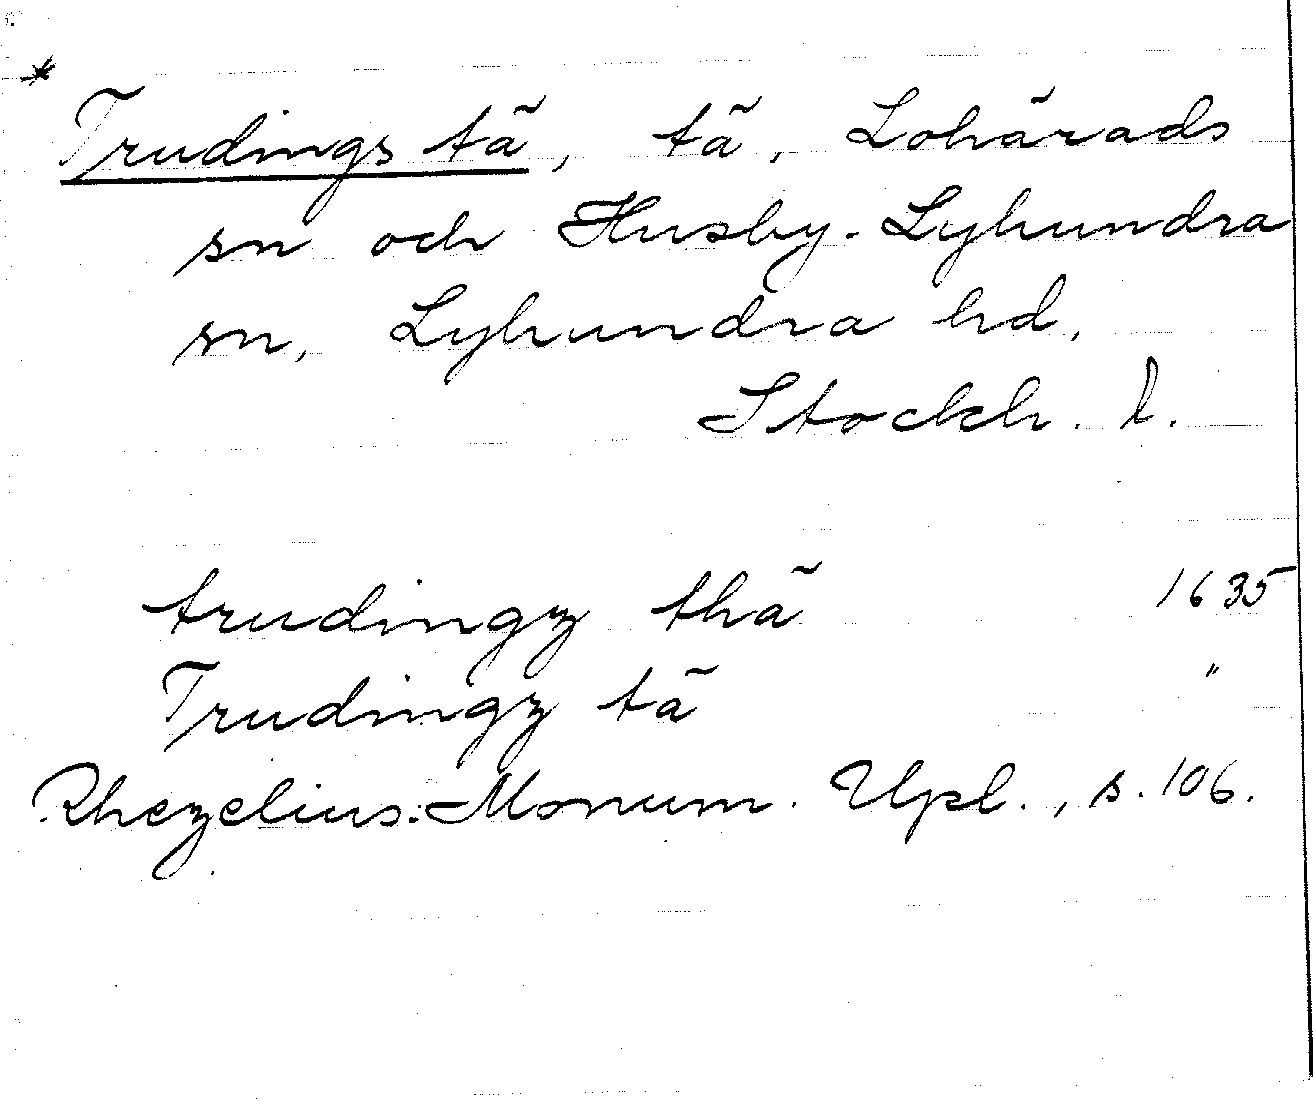 * Trudings tä, tä, Lohärads
sn och Husby-Lyhundra
sn, Lyhundra hd,
Stockh. l.
trudingz thä 1635
Trudingz tä "
Rhezelius: Monum. Upl., s. 106.